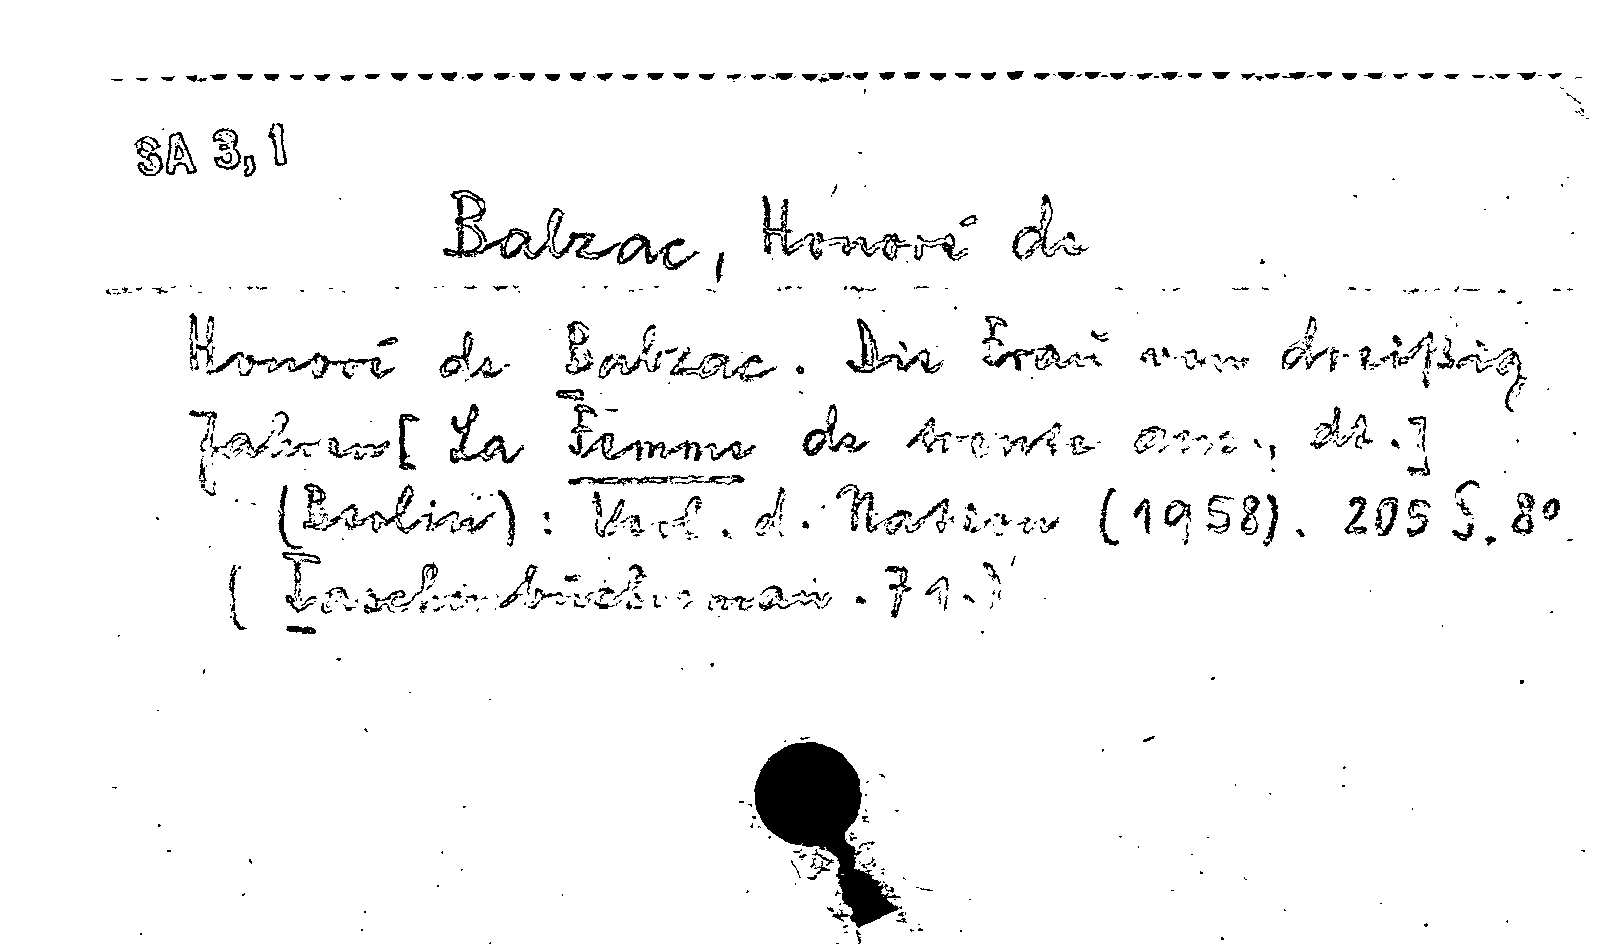 SA 3,1
Balzac, Honoré de
Honoré de Balzac. Die Frau von dreißig
Jahren [La Femme de trente ans., dt.]
(Berlin): Verl. d. Nation (1958). 205 S. 8°
(Taschenbuchroman. 71.)